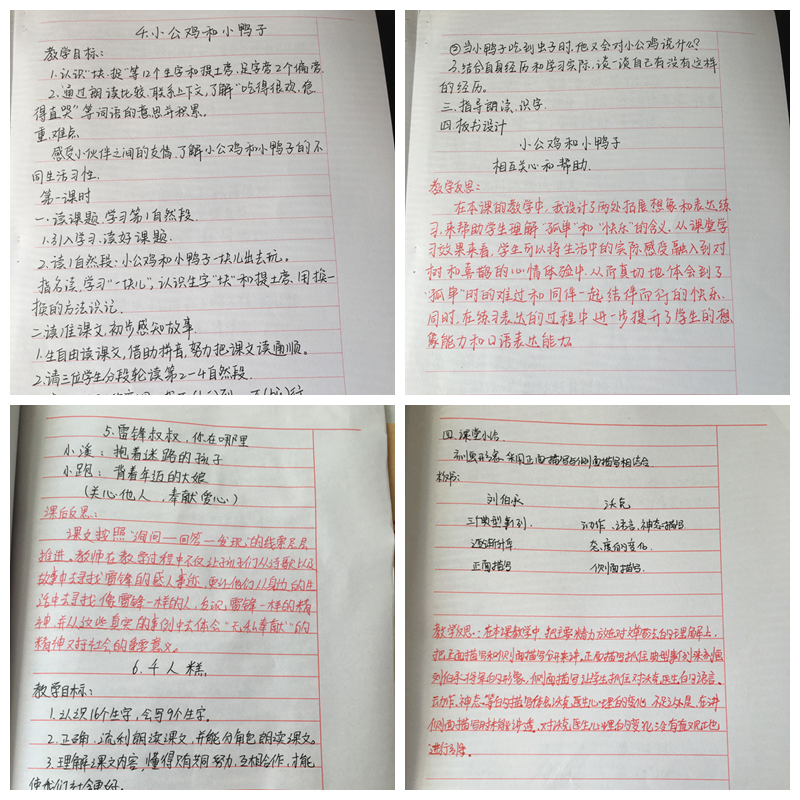 4.小公鸡和小鸭子
教学目标:
1.认识"块、捉"等12个生字和提土旁、足字旁2个偏旁.
2.通过朗读比较.联系上下文,了解"吃得很欢、急
得直哭"等词语的意思并积累。
重.难点
感受小伙伴之间的友情.了解小公鸡和小鸭子的不
同生活习性.
第一课时
一.读课题.学习第1自然段.
1.引入学习.读好课题.
2.读1自然段:小公鸡和小鸭子一块儿出去玩。
指名读.学习"一块儿",认识生字"块"和提土旁.用换一
换的方法识记.
二.读准课文.初步感知故事.
1.生自由读课文,借助拼音.努力把课文读通顺。
2.请三位学生分段轮读第2-4自然段.
②当小鸭子吃到虫子时,他又会对小公鸡说什么?
3.结合自身经历和学习实际,谈一谈自己有没有这样
的经历.
三.指导朗读.识字.
四.板书设计
小公鸡和小鸭子
相互关心和帮助.
教学反思:
在本课的教学中,我设计了两处拓展想象和表达练
习,来帮助学生理解"孤单"和"快乐"的含义.从课堂学
习效果来看,学生可以将生活中的实际感受融入到对
树和喜鹊的心情体验中.从而真切地体会到了
"孤单"时的难过和同伴一起结伴而行的快乐.
同时,在练习表达的过程中进一步提升了学生的想
象能力和口语表达能力.
5.雷锋叔叔,你在哪里
小溪:抱着迷路的孩子
小路:背着年迈的大娘
(关心他人,奉献爱心)
课后反思:
课文按照"询问一回答一发现"的线索层层
推进。教师在教学过程中不仅让孩子们从诗歌以及
故事中去寻找雷锋的感人事迹,更让他们从身边的生
活中去寻找像雷锋一样的人,
神,并从这些真实的事例中去体会"无私奉献"的
精神对社会的重要意义。
6.千人糕
教学目标:
1.认识16个生字,会写9个生字。
2.正确、流利朗读课文,并能分角色朗读课文。
3.理解课文内容,懂得只有共同努力,互相合作,才能
使我们社会更好.
四.课堂小结.
刻画形象,采用正面描写与侧面描写相结合.
板书:
刘伯承 沃克
三个典型事例. 动作、语言、神态描写
逐渐升华. 态度的变化.
正面描写 侧面描写.
教学反思:在本课教学中,把主要精力放在对重难点的理解上,
把正面描写和侧面描写分开来讲.正面描写抓住典型事例来刻画
刘伯承将军的形象,侧面描写让学生抓住对沃克医生的语言、
动作、神态等的描写体会沃克医生心理的变化.不足之处是,在讲
侧面描写时未能讲透,对沃克医生心理的变化没有直观地
进行引导。